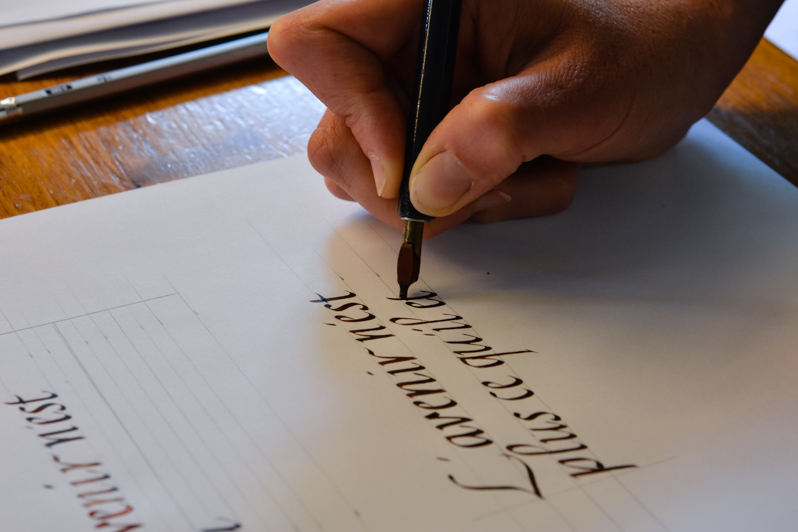 L'avenir n'est
plus ce qu'il
venir n'est